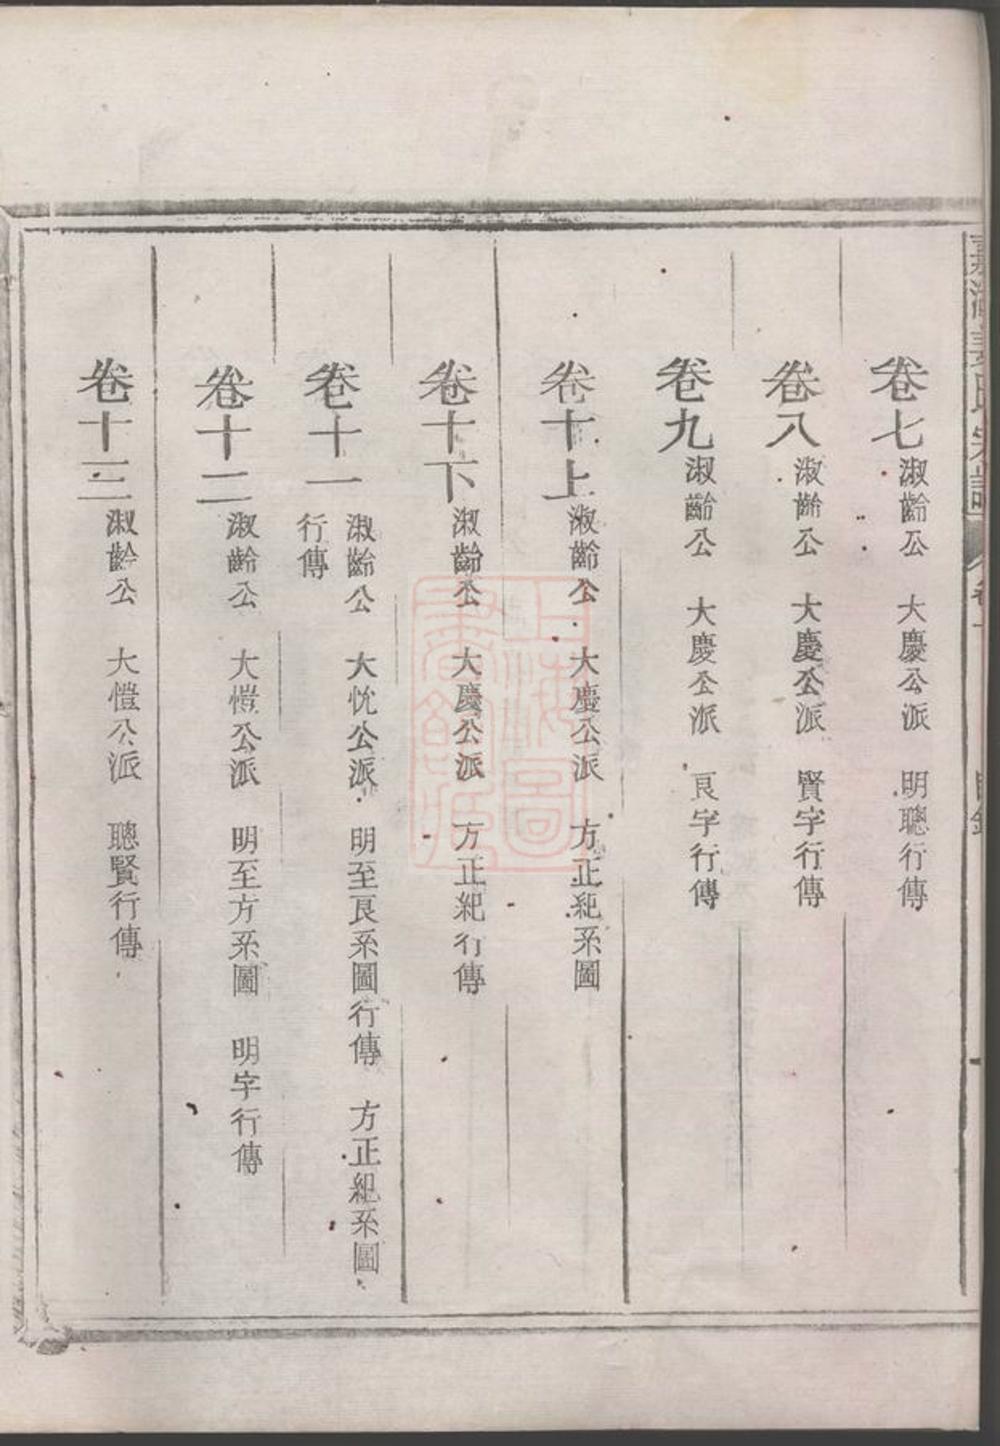 卷七 淑齡公 大慶公派 明聰行傳
卷八 淑齡公 大慶公派 賢字行傳
卷九 淑齡公 大慶公派 良字行傳
卷十上 淑齡公 大慶公派 方正紀系圖
卷十下 淑齡公 大慶公派 方正紀行傳
卷十一 淑齡公 大忱公派 明至良系圖行傳 方正紀系圖
行傳
卷十二 淑齡公 大愷公派 明至方系圖 明字行傳
卷十三 淑齡公 大愷公派 聰賢行傳
上海圖書館藏